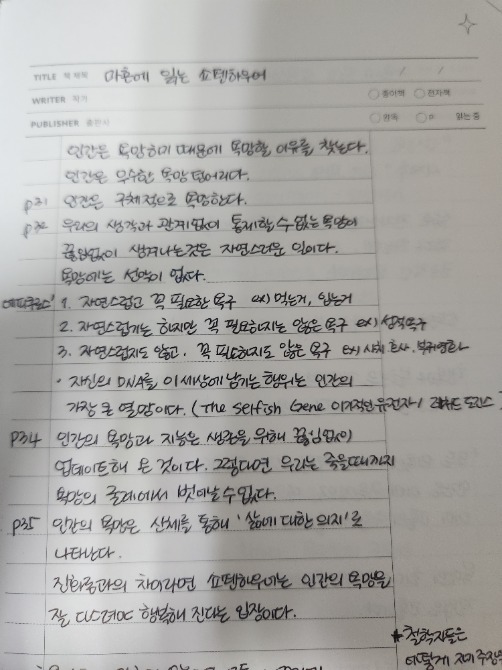 TITLE 책 제목 마흔에 읽는 쇼펜하우어 / /
WRITER 작가 종이책 전자책
PUBLISHER 출판사 완독 읽는 중
인간은 욕망하기 때문에 욕망할 이유를 찾는다.
인간은 무수한 욕망 덩어리다.
p31 인간은 구체적으로 욕망한다.
p32 우리의 생각과 관계없이 통제할 수 없는 욕망이
끊임없이 생겨나는것은 자연스러운 일이다.
욕망에는 선악이 없다.
1. 자연스럽고 꼭 필요한 욕구 ex) 먹는거, 입는거
2. 자연스럽기는 하지만 꼭 필요하지는 않은 욕구 ex) 성적욕구
3. 자연스럽지도 않고. 꼭 필요하지도 않은 욕구 ex) 사치 호사. 부귀영화
· 자신의 DNA를 이 세상에 남기는 행위는 인간의
가장 큰 열망이다. (The Selfish Gene 이기적인 유전자 / 리처드 도킨스)
P34 인간의 욕망과 지능은 생존을 위해 끊임없이
업데이트해 온 것이다. 그렇다면 우리는 죽을때까지
욕망의 굴레에서 벗어날수없다.
p35 인간의 욕망은 신체를 통해 '삶에 대한 의지'로
나타난다.
진화론과의 차이라면 쇼펜하우어는 인간의 욕망을
잘 다스려야 행복해 진다는 입장이다.
* 철학자들은
어떻게